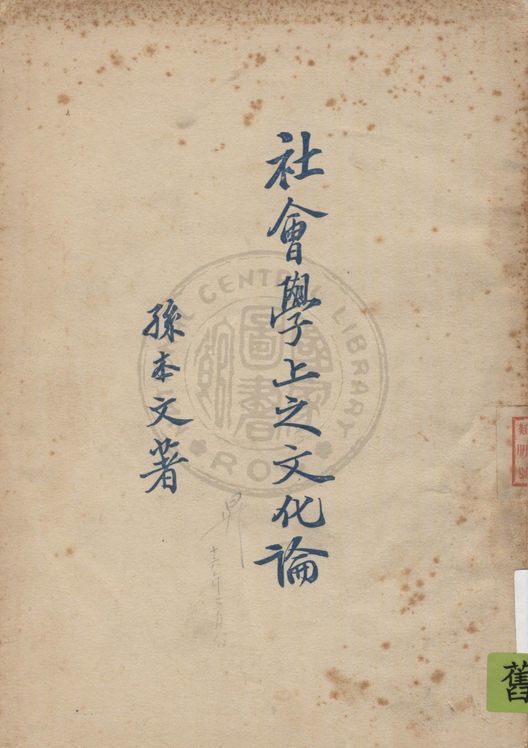 社會學上之文化論
孫本文著
CENTRAL LIBRARY
國家圖書館
R.O.C.
舊